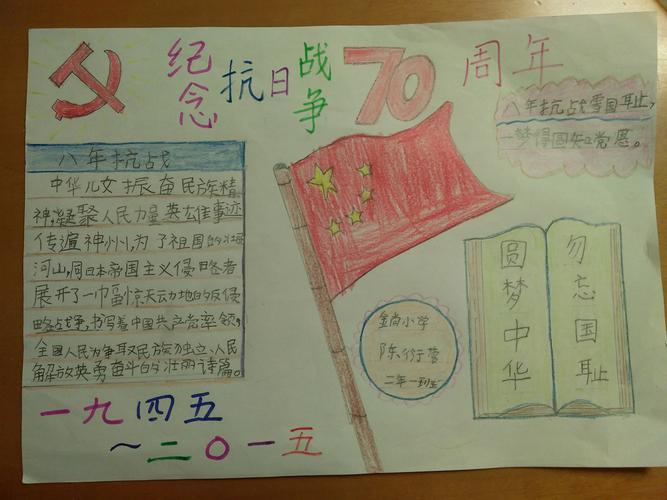 纪念抗日战争70周年
八年抗战雪国耻,
一梦得圆知党恩。
八年抗战
中华儿女振奋民族精
神,凝聚人民力量英雄事迹
传遍神州,为了祖国的壮
河山,同日本帝国主义侵略者
展开了一幅惊天动地的反侵
略战争,书写着中国共产党率领,
全国人民为争取民族独立、人民
解放英勇奋斗的壮丽诗篇。
勿忘国耻
圆梦中华
金尚小学
陈衍
二年一班
一九四五
~二〇一五